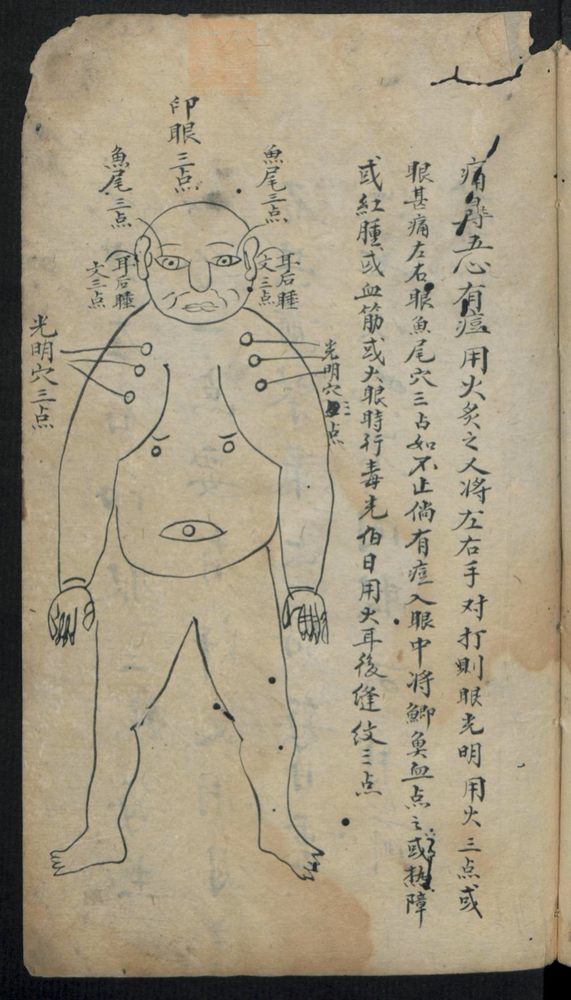 痛尋五心有痘用火炙之人将左右手对打則眼光明用火三点或
眼甚痛左右眼魚尾穴三占如不止倘有痘入眼中将鯽魚血点之或热障
或紅腫或血筋或火眼時行毒先伯日用火耳後縫紋三点
魚尾三点
印眼三点
魚尾三点
耳后腫
文三点
耳后腫
文三点
光明穴三点
光明穴三点